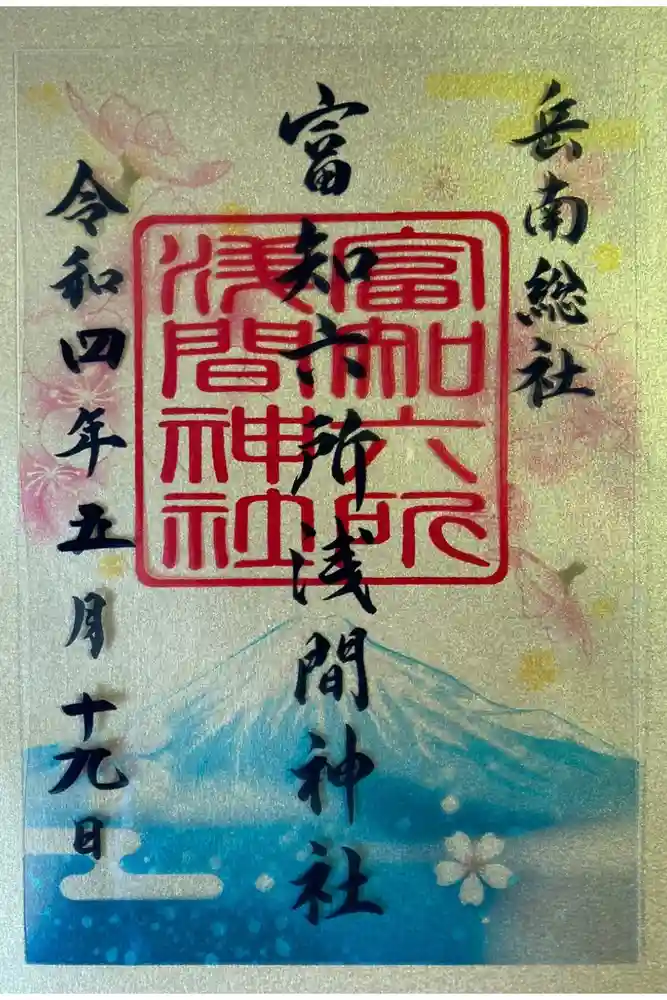 岳南総社
富知六所浅間神社
富知六所
浅間神社
令和四年五月十九日